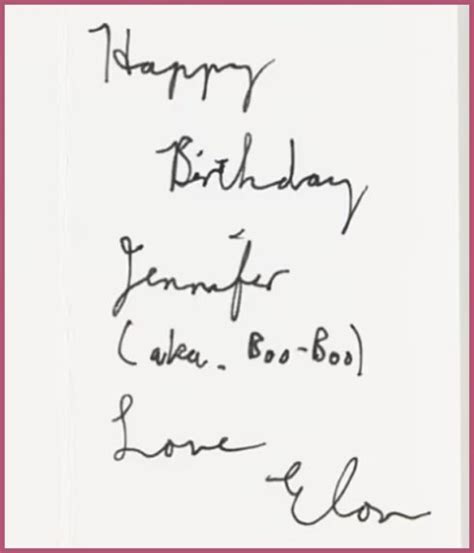 Happy
Birthday
Jennifer
(aka. Boo-Boo)
Love
Elon